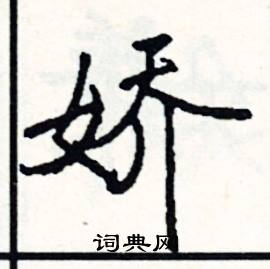 娇
词典网